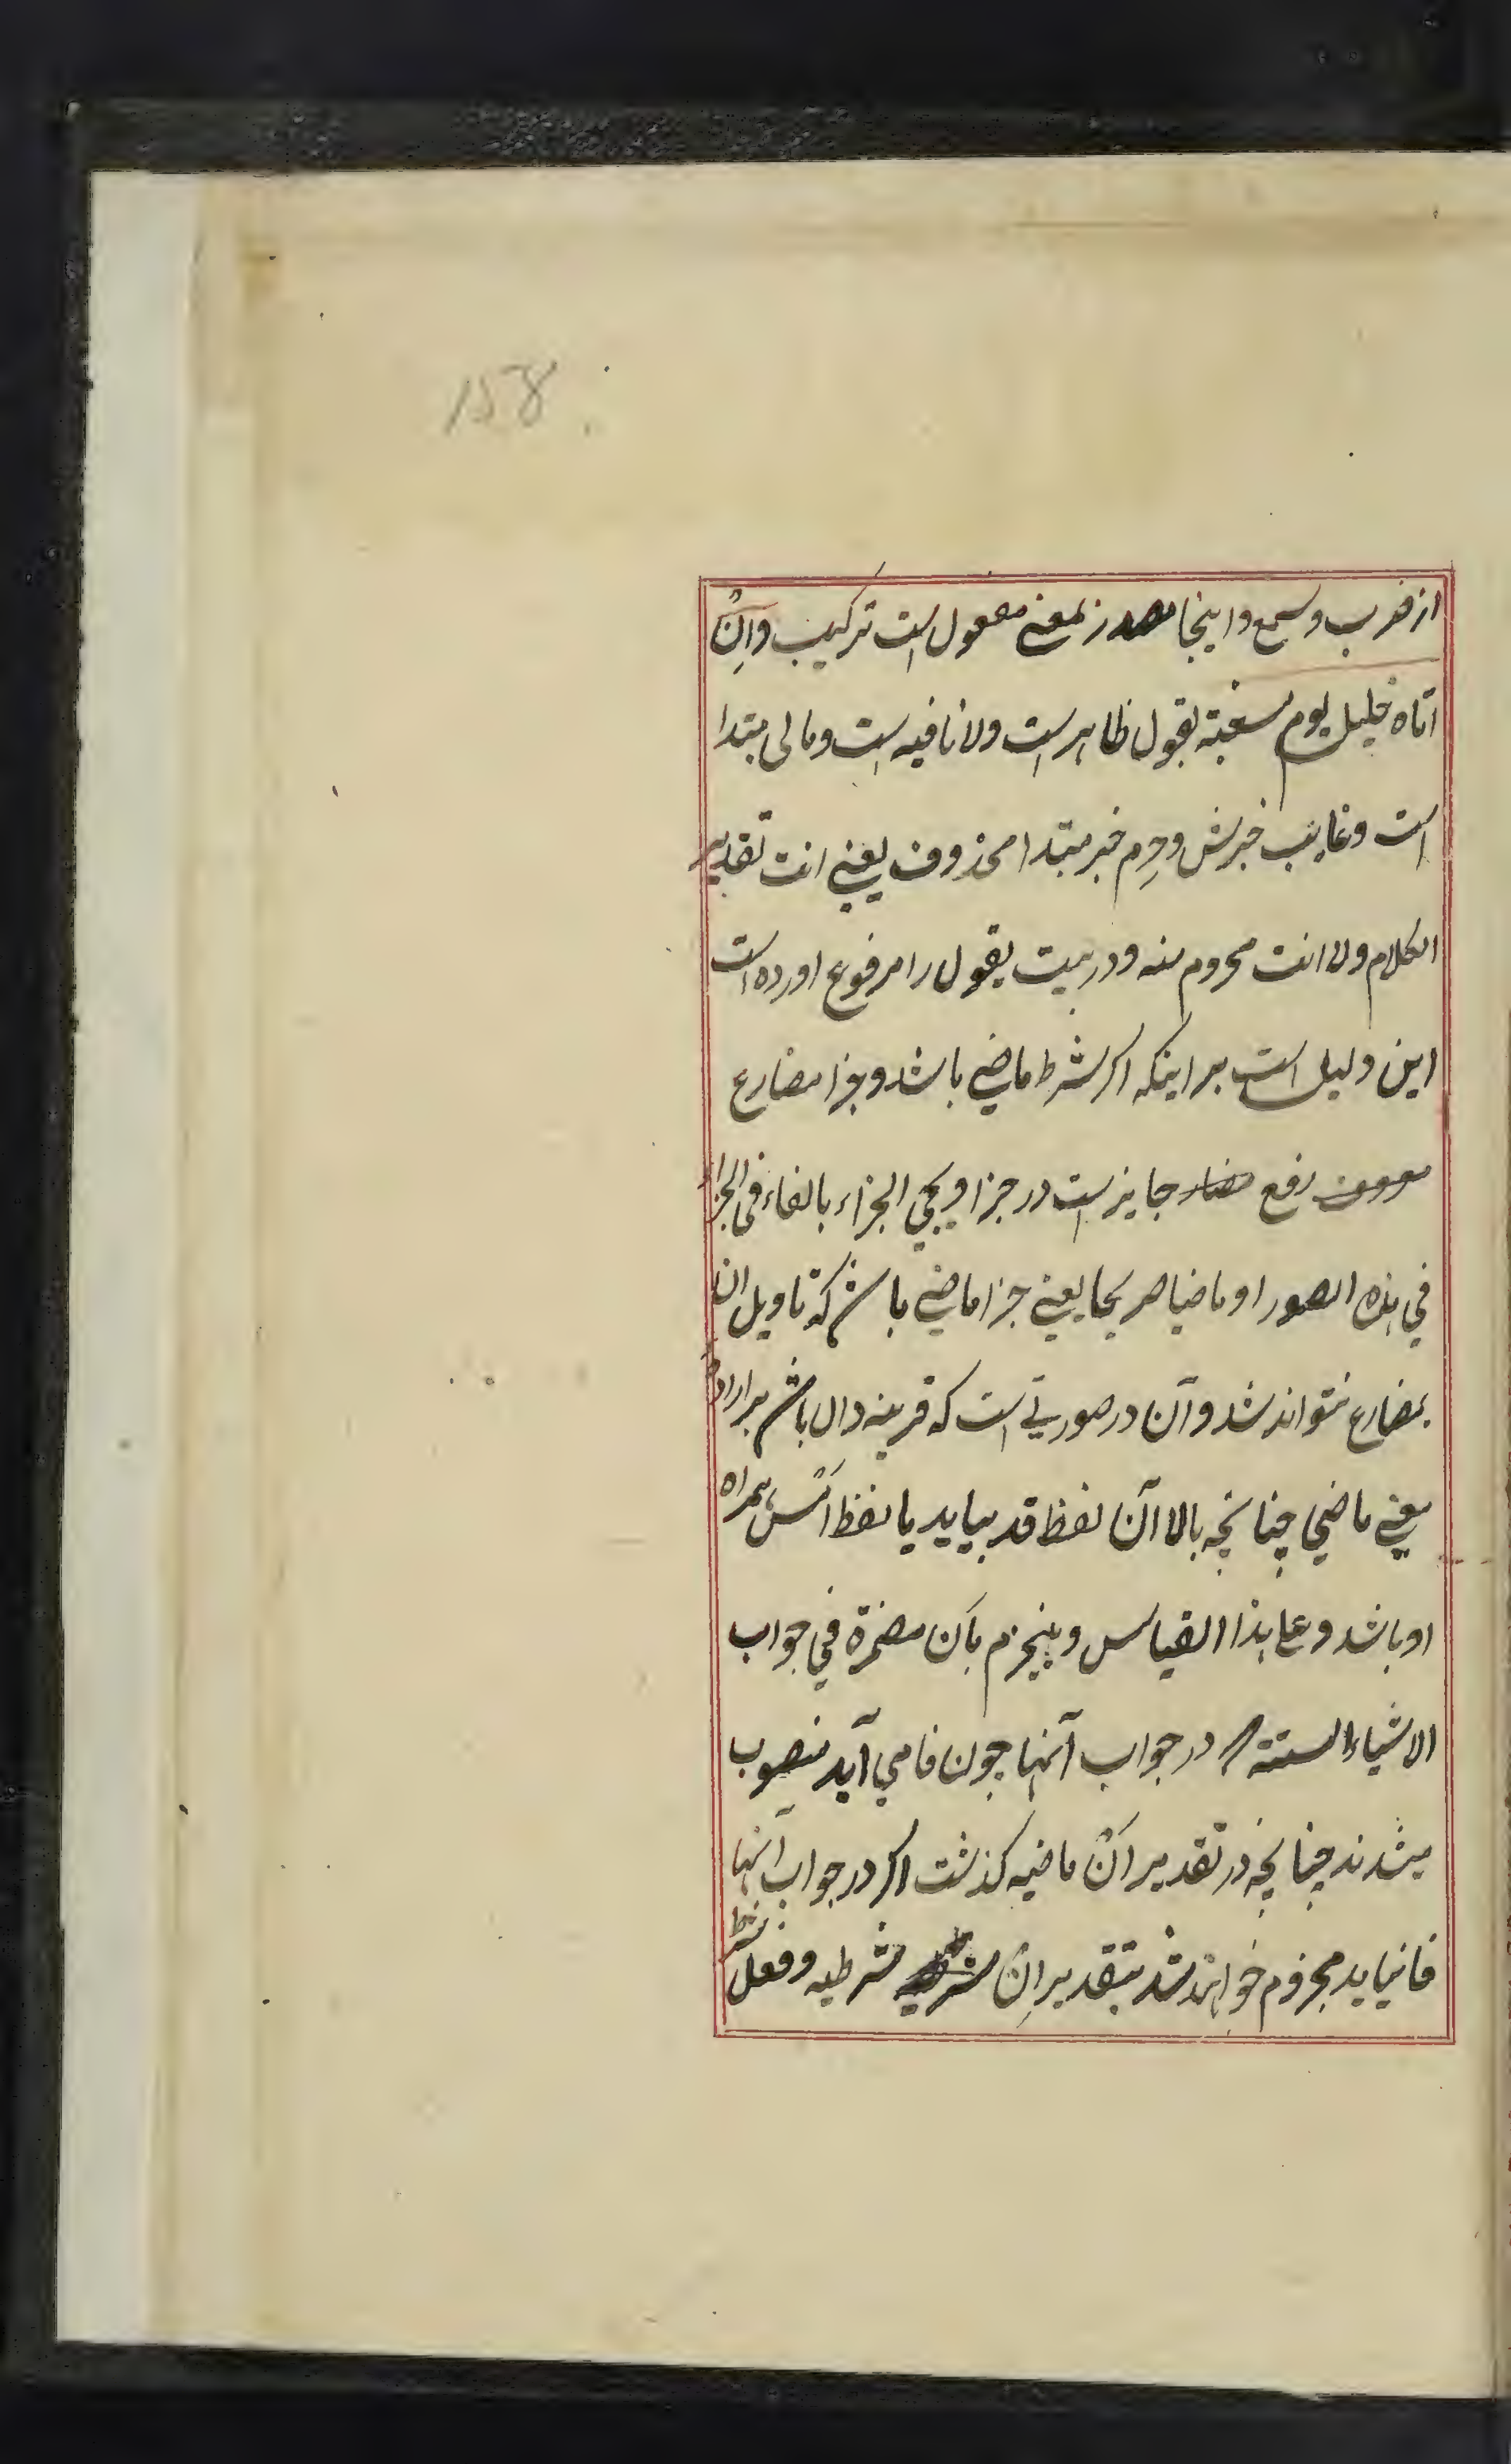 158
از ضرب وسمع واینجا مصدر بمعنی مفعول است ترکیب وَاِنْ
اتاه خلیل یوم مسغبة یقول ظاهر است ولا نافیه است ومالی مبتدا
است وغایب خبرش وحرِم خبر مبتدا محذوف یعنی انت تقدیر
الکلام ولا انت محروم منه ودر بیت یقول را مرفوع اورده است
این دلیل است بر اینکه اکر شرط ماضی باشد وجزا مضارع
رفع جایز است در جزا ویجی الجزاء بالفاء فی الجزاء
فی هذه الصور او ماضیا صریحا یعنی جزا ماضی باشد که تاویل ان
بمضارع نتواند شد وآن در صورتی است که قرینه دال باشد بر اراده
معنی ماضی چنانچه بالا آن لفظ قد بیاید یا لفظ اَمْسِ همراه
او باشد وعلی هذا القیاس وینجزم بِاَن مضمرة فی جواب
الاشیاء الستة در جواب آنها چون فا می آید منصوب
میشدند چنانچه در تقدیر اَنْ ماضیه کذشت اکر در جواب آنها
فا نیاید مجزوم خواهند شد بتقدیر اِنْ شرطیه وفعل شرط